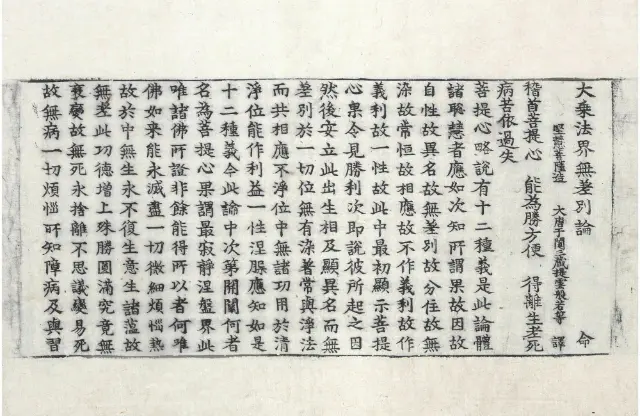 大乘法界無差別論 命
堅慧菩薩造 大唐于闐三藏提雲般若等 譯
稽首菩提心 能為勝方便 得離生老死
病苦依過失
菩提心略說有十二種義是此論體
諸聰慧者應如次知所謂果故因故
自性故異名故無差別故分位故無
染故常恒故相應故不作義利故作
義利故一性故此中最初顯示菩提
心果令見勝利次即說彼所起之因
然後安立此出生相及顯異名而無
差別於一切位無有染著常與淨法
而共相應不淨位中無諸功用於清
淨位能作利益一性涅槃應知如是
十二種義今此論中次第開闡何者
名為菩提心果謂最寂靜涅槃界此
唯諸佛所證非餘能得所以者何唯
佛如來能永滅盡一切微細煩惱熱
故於中無生永不復生意生諸蘊故
無老此功德增上殊勝圓滿究竟無
衰變故無死永捨離不思議變易死
故無病一切煩惱所知障病及與習